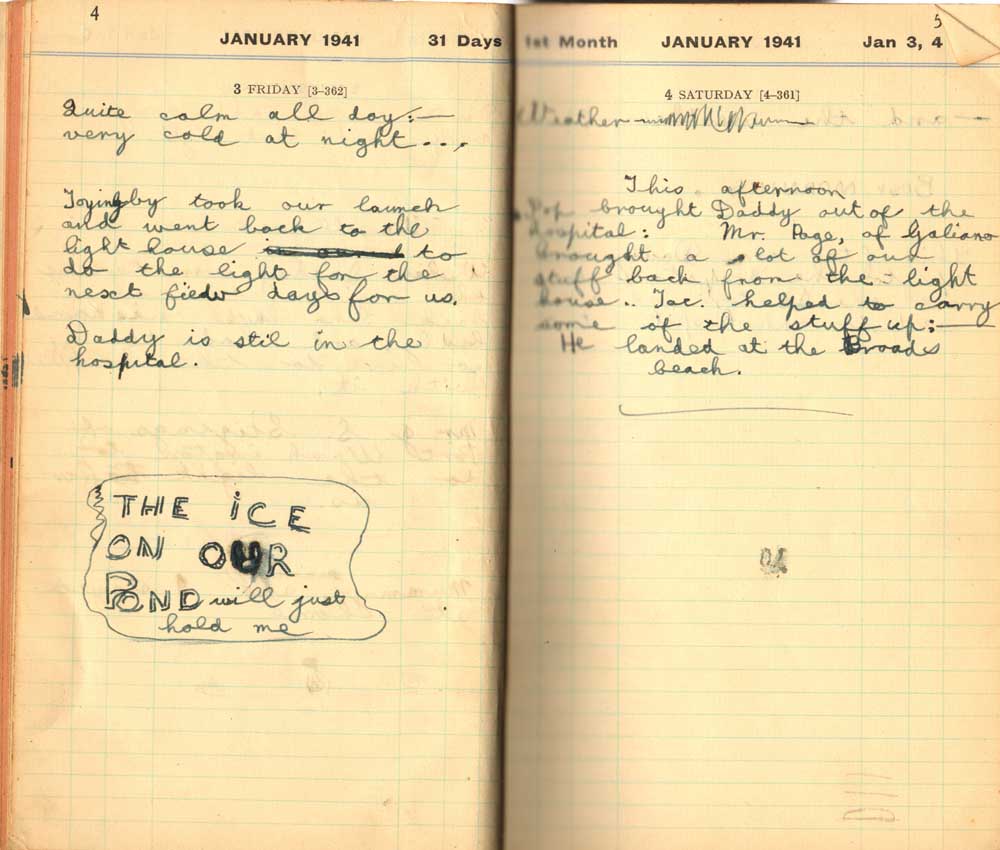 4
JANUARY 1941 31 Days
3 FRIDAY [3–362]
Quite calm all day:—
very cold at night...,
took our launch
and went back to the
light house to
do the light for the
next days for us.
Daddy is stil in the
hospital.
THE iCE
ON OUR
POND will just
hold me
5
1st Month JANUARY 1941 Jan 3, 4
4 SATURDAY [4–361]
Weather
This afternoon
Pop brought Daddy out of the
hospital: Mr. Page, of Galiano
brought a lot of our
stuff back from the light
house.. Tac. helped to carry
some of the stuff up:—
He landed at the Broads
beach.